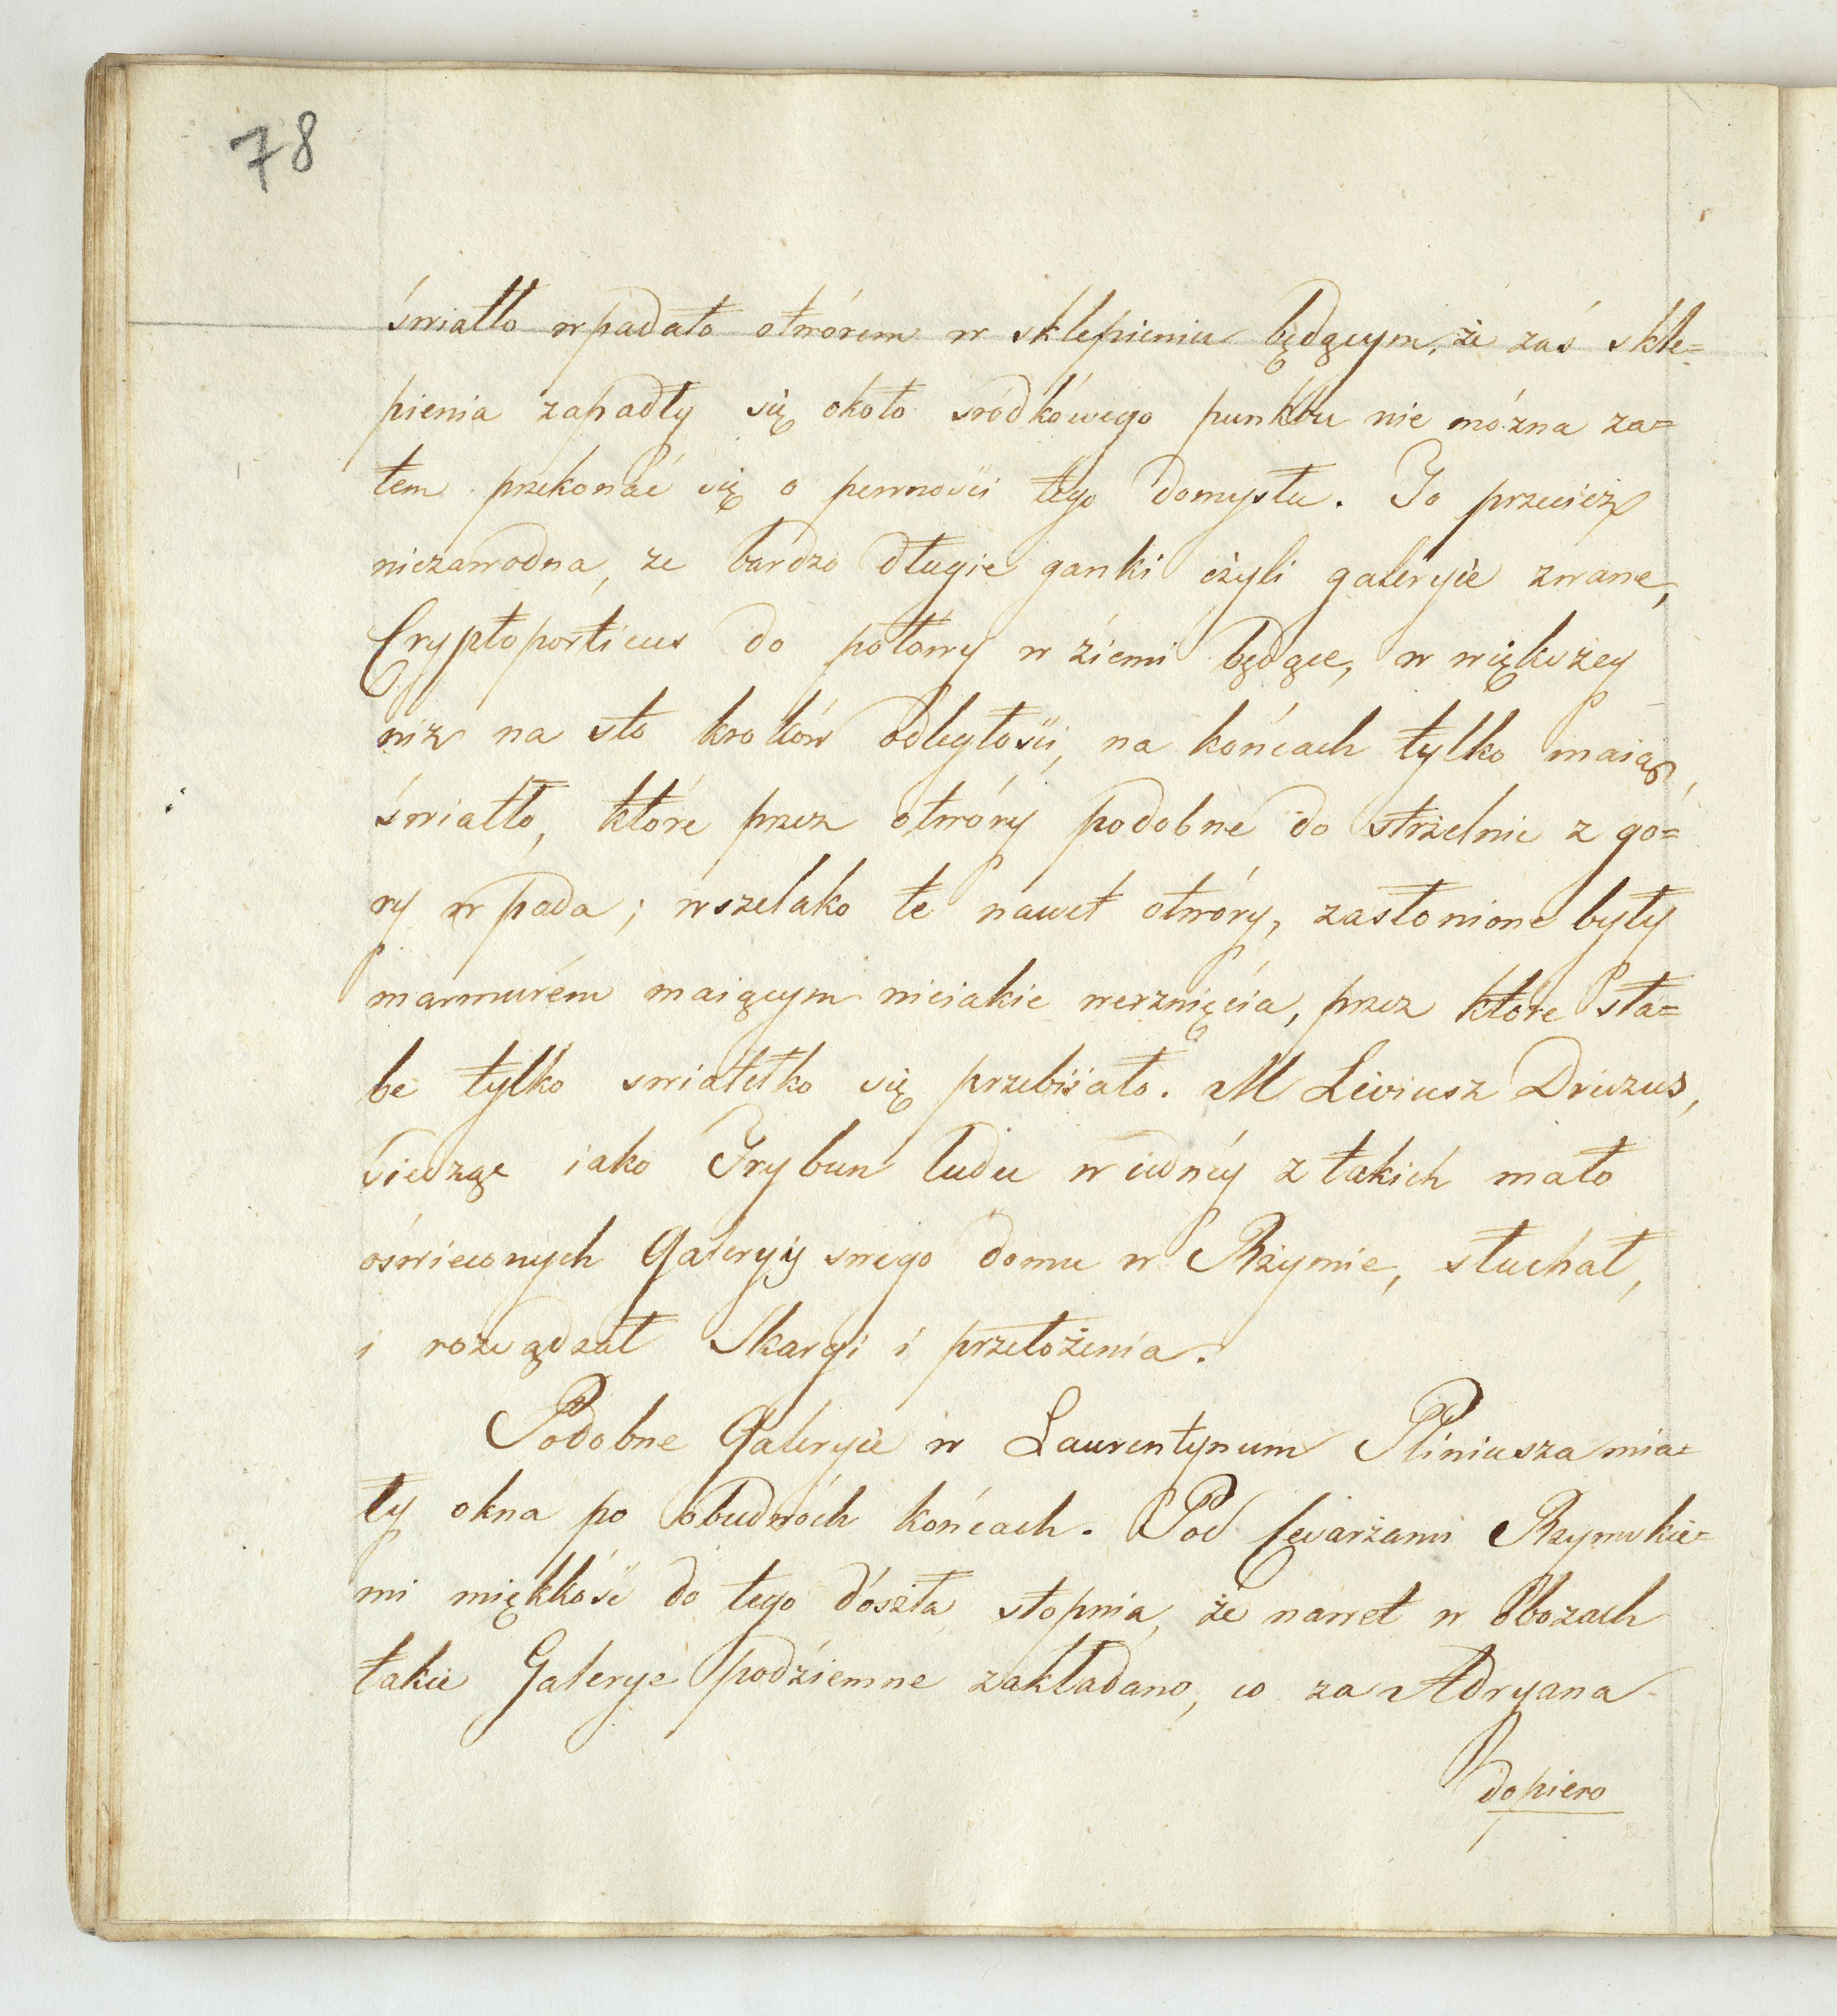 78
światło wpadało otworem w sklepieniu będącym, że zaś skle=
pienia zapadły się około sródkowego punktu nie można za=
tem przekonać się o pewności tego domysłu. To przecież
niezawodna, że bardzo długie ganki czyli galeryie zwane,
Cryptoporticus do połowy w ziemi będące, w większey
niż na sto kroków odległości, na końcach tylko maią,
światło, które przez otwory podobne do strzelnic z gó=
ry wpada; wszelako te nawet otwory, zasłonione były
marmurem maiącym nieiakie werznięcia, przez które sła=
be tylko swiatełko się przebiiało. M Liviusz Druzus,
siedząc iako Trybun ludu w iednéy z takich mało
oświeconych Galeryiy swego domu w Rzymie, słuchał,
i rozsądzał Skargi i przełożenia.
Podobne Galeryie w Laurentynum Pliniusza mia=
ły okna po obudwóch końcach. Pod Cezarzami Rzymskie=
mi miękkość do tego doszła stopnia, że nawet w obozach
takie Galerye podziemne zakładano, co za Adryana
dopiero